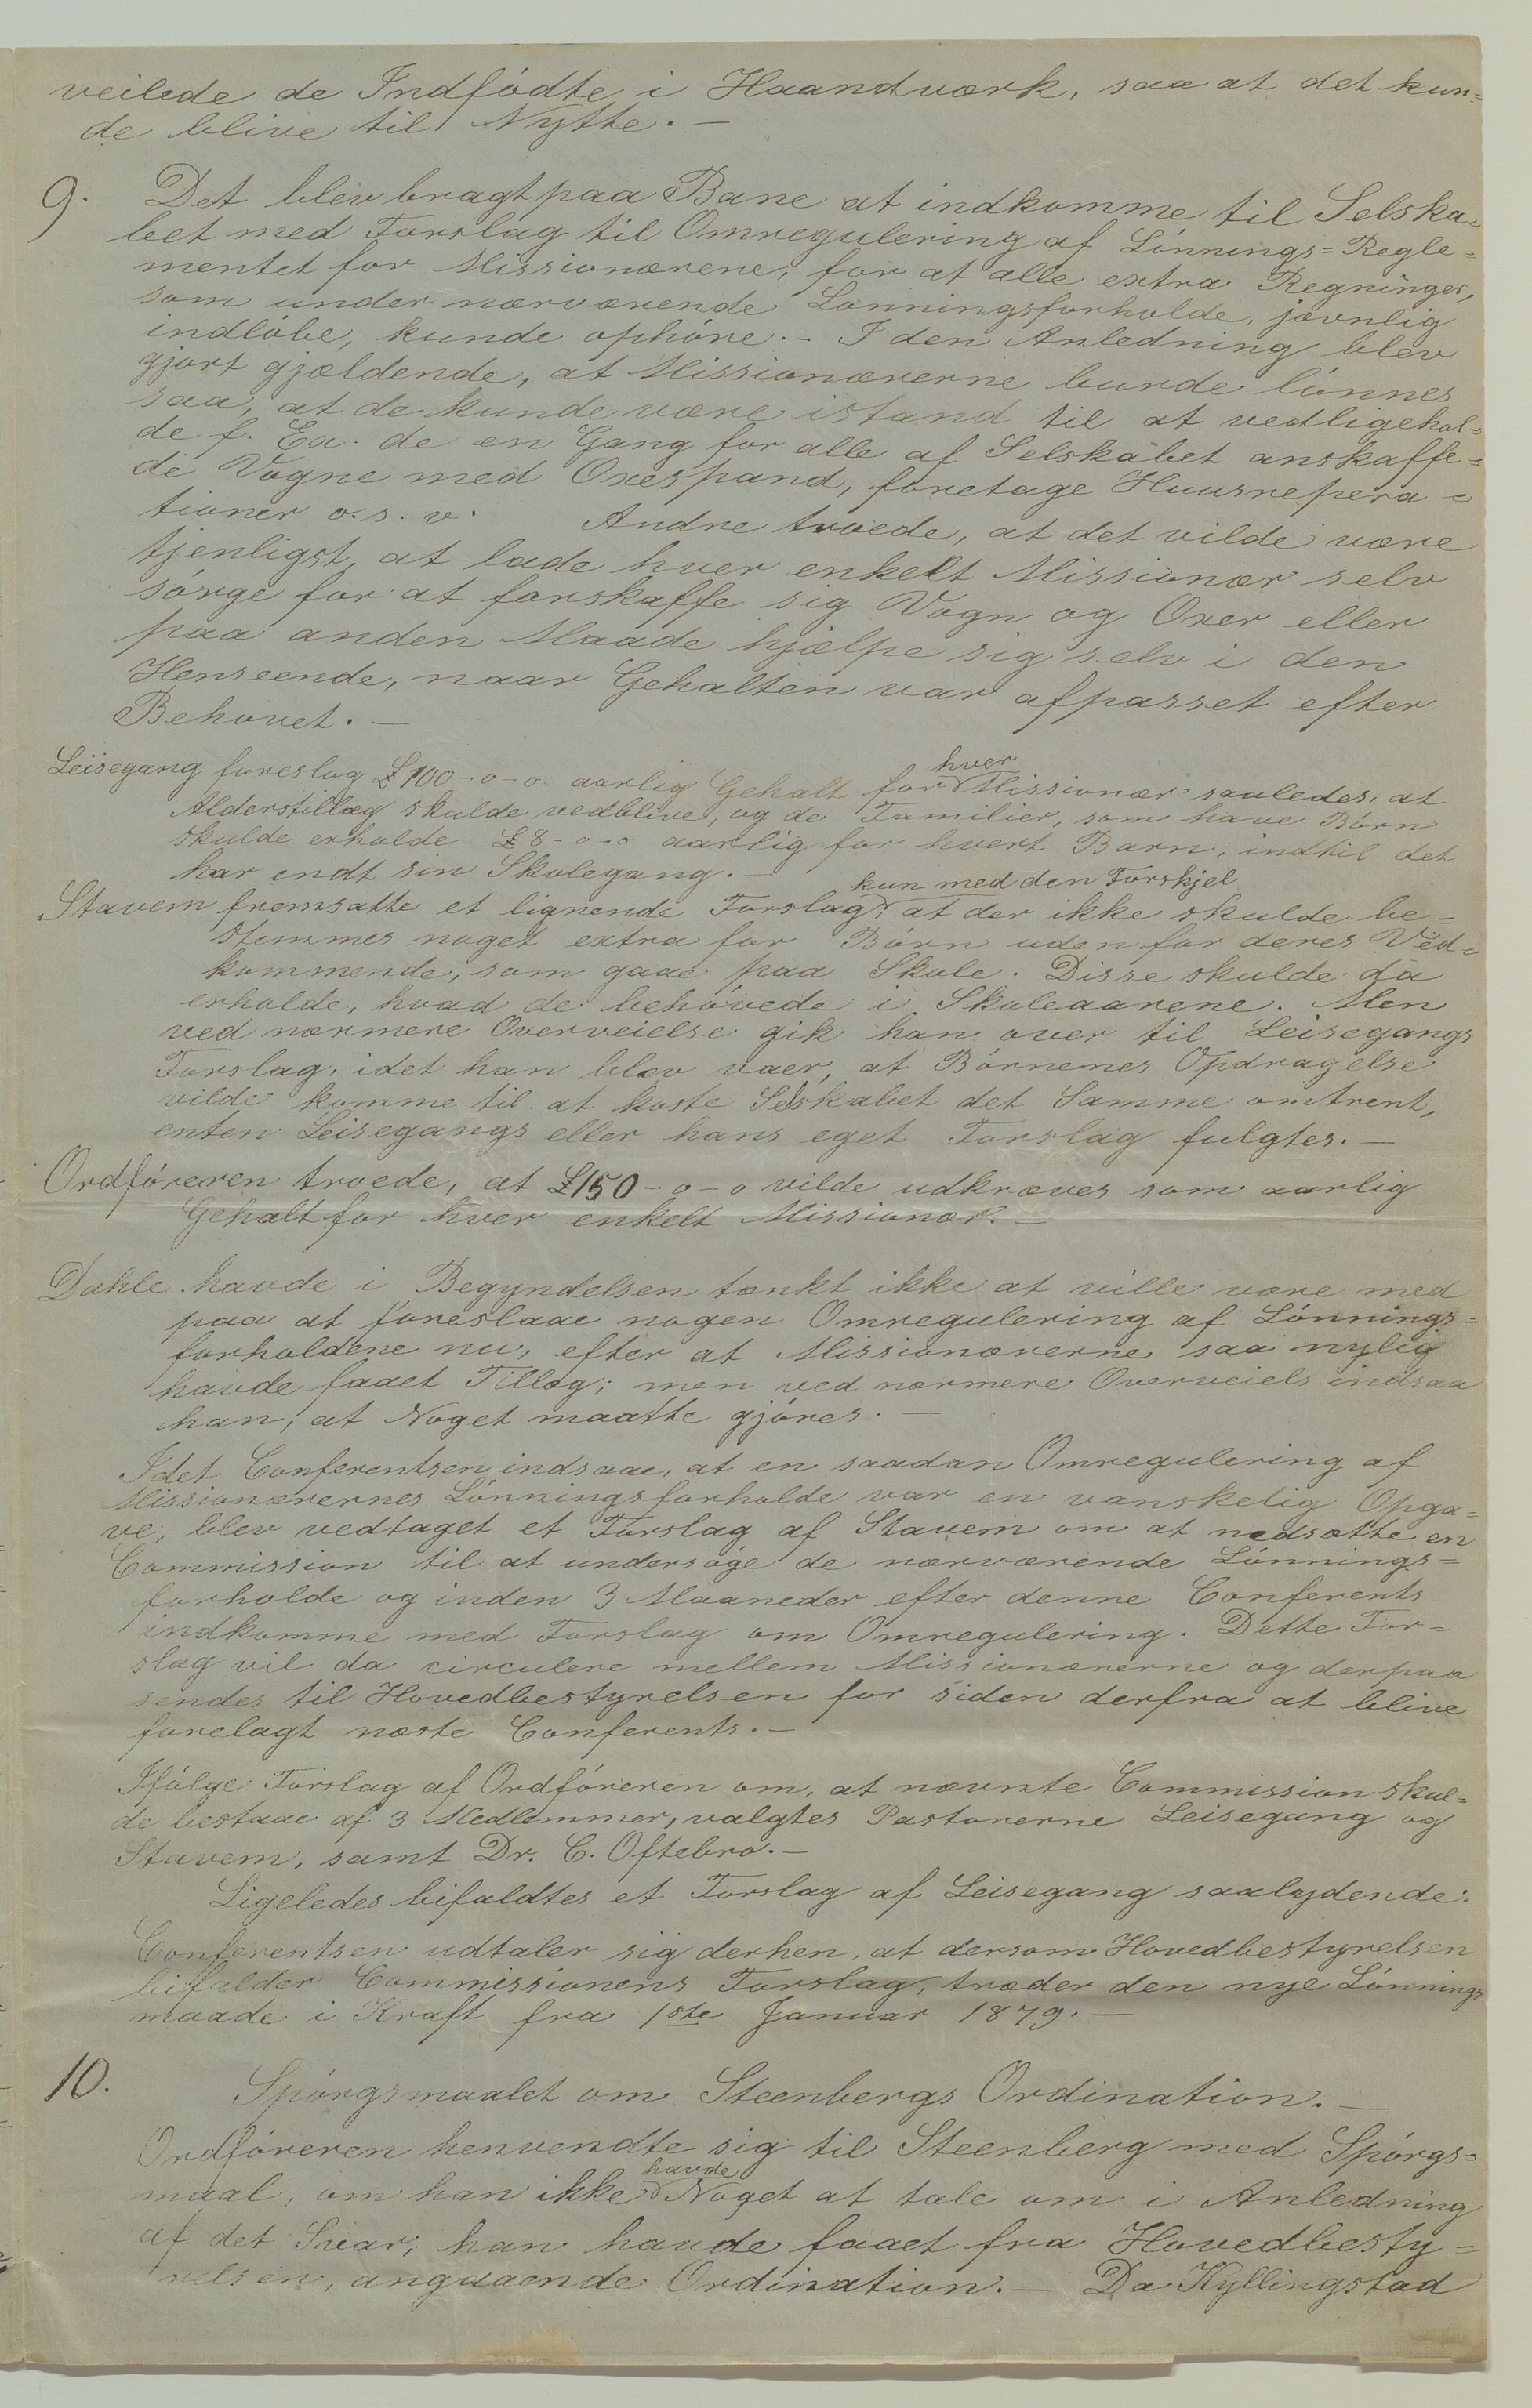 veilede de Indfödte i Haandværk, saa at det kun=
de blive til Nytte. —
9. Det blev bragt paa Bane at indkomme til Selska=
bet med Forslag til Omregulering af Lönnings=Regle=
mentet for Missionærene, for at alle extra Regninger,
som under nærværende Lönningsforholde, jævnlig
indlöbe, kunde ophöre. – I den Anledning blev
gjort gjældende, at Missionærerne burde lönnes
saa, at de kunde være istand til at vedligehol=
de f. Ex. de en Gang for alle af Selskabet anskaffe=
de Vogne med Oxespand, foretage Huusrepera=
tioner o.s.v. Andre troede, at det vilde være
tjenligst, at lade hver enkelt Missionær selv
sörge for at forskaffe sig Vogn og Oxer eller
paa anden Maade hjælpe sig selv i den
Henseende, naar Gehalten var afpasset efter
Behovet. —
Leisegang foreslog £100-0-0 aarlig Gehalt for hver Missionær saaledes, at
Alderstillæg skulde vedblive, og de Familier, som have Börn
skulde erholde £8-0-0 aarlig for hvert Barn, indtil det
har endt sin Skolegang. —
Stavem fremsatte et lignende Forslag, kun med den Forskjel at der ikke skulde be=
stemmes noget extra for Börn uden for deres Ved=
kommende, som gaae paa Skole. Disse skulde da
erholde, hvad de behövede i Skoleaarene. Men
ved nærmere Overveielse gik han over til Leisegangs
Forslag, idet han blev vaer, at Börnenes Opdragelse
vilde komme til at koste Selskabet det Samme omtrent,
enten Leisegangs eller hans eget Forslag fulgtes. —
Ordföreren troede, at £150-0-0 vilde udkræves som aarlig
Gehalt for hver enkelt Missionær. —
Dahle havde i Begyndelsen tænkt ikke at ville være med
paa at foreslaae nogen Omregulering af Lönnings=
forholdene nu, efter at Missionærerne saa nylig
havde faaet Tillæg; men ved nærmere Overveiels indsaa
han, at Noget maatte gjöres. —
Idet Conferentsen indsaae, at en saadan Omregulering af
Missionærernes Lönningsforholde var en vanskelig Opga=
ve, blev vedtaget et Forslag af Stavem om at nedsætte en
Commission til at undersöge de nærværende Lönnings=
forholde og inden 3 Maaneder efter denne Conferents
indkomme med Forslag om Omregulering. Dette For=
slag vil da circulere mellem Missionærerne og derpaa
sendes til Hovedbestyrelsen for siden derfra at blive
forelagt næste Conferents. —
Ifölge Forslag af Ordföreren om, at nævnte Commission skul=
de bestaae af 3 Medlemmer, valgtes Pastorerne Leisegang og
Stavem, samt Dr. C. Oftebro. —
Ligeledes bifaldtes et Forslag af Leisegang saalydende:
Conferentsen udtaler sig derhen, at dersom Hovedbestyrelsen
bifalder Commissionens Forslag, træder den nye Lönnings
maade i Kraft fra 1ste Januar 1879. —
10. Spörgsmaalet om Steenbergs Ordination. —
Ordföreren henvendte sig til Steenberg med Spörgs=
maal, om han ikke havde Noget at tale om i Anledning
af det Svar, han havde faaet fra Hovedbesty=
relsen, angaaende Ordination. — Da Kyllingstad